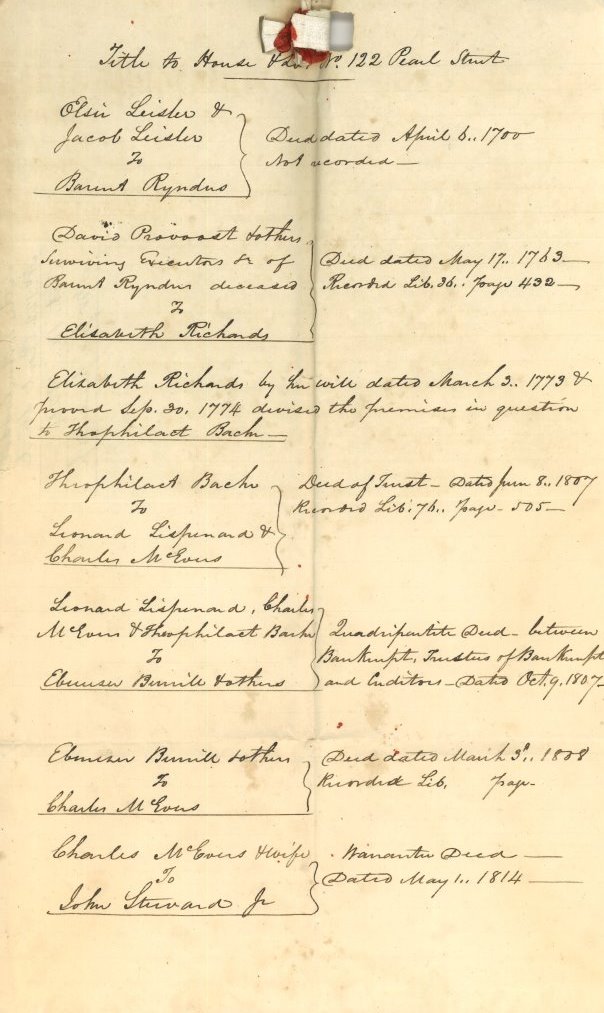 Title to House & Lot No. 122 Pearl Street
Elsie Leisler &
Jacob Leisler
To
Barent Rynders
Deed dated April 6.. 1700
Not recorded —
David Provoost & others
Surviving Executors &c of
Barent Rynders deceased
To
Elisabeth Richards
Deed dated May 17.. 1763 —
Recorded Lib. 36.. Page 432 —
Elizabeth Richards by her will dated March 3.. 1773 &
proved Sep. 30. 1774 devised the premises in question
to Theophilact Bache —
Theophilact Bache
To
Leonard Lispenard &
Charles McEvers
Deed of Trust — Dated June 8.. 1807
Recorded Lib. 76.. Page - 505 —
Leonard Lispenard, Charles
McEvers & Theophilact Bache
To
Ebenezer Burrill & others
Quadripartite Deed - between
Bankrupt, Trustees of Bankrupt
and Creditors — Dated Oct. 9. 1807 -
Ebenezer Burrill & others
To
Charles McEvers
Deed dated March 3d.. 1808
Recorded Lib. Page -
Charles McEvers & wife
To
John Steward Jr
Warrantee Deed —
Dated May 1.. 1814 —